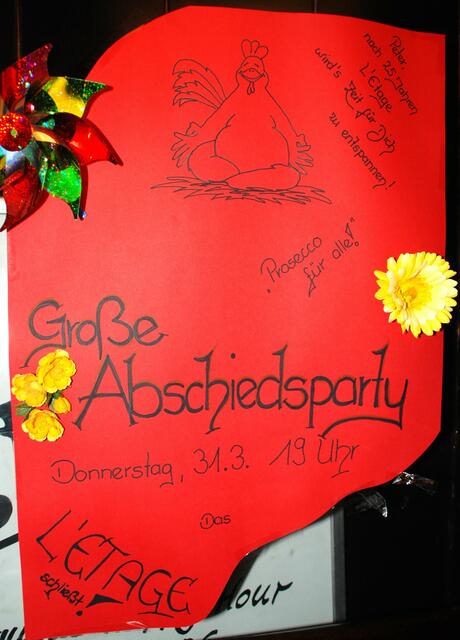 Peter,
nach 25 Jahren
L'Etage
wird's Zeit für Dich
zu entspannen!
"Prosecco
für alle!"
Große
Abschiedsparty
Donnerstag, 31.3. 19 Uhr
Das
L'ETAGE
schließt!
Hour